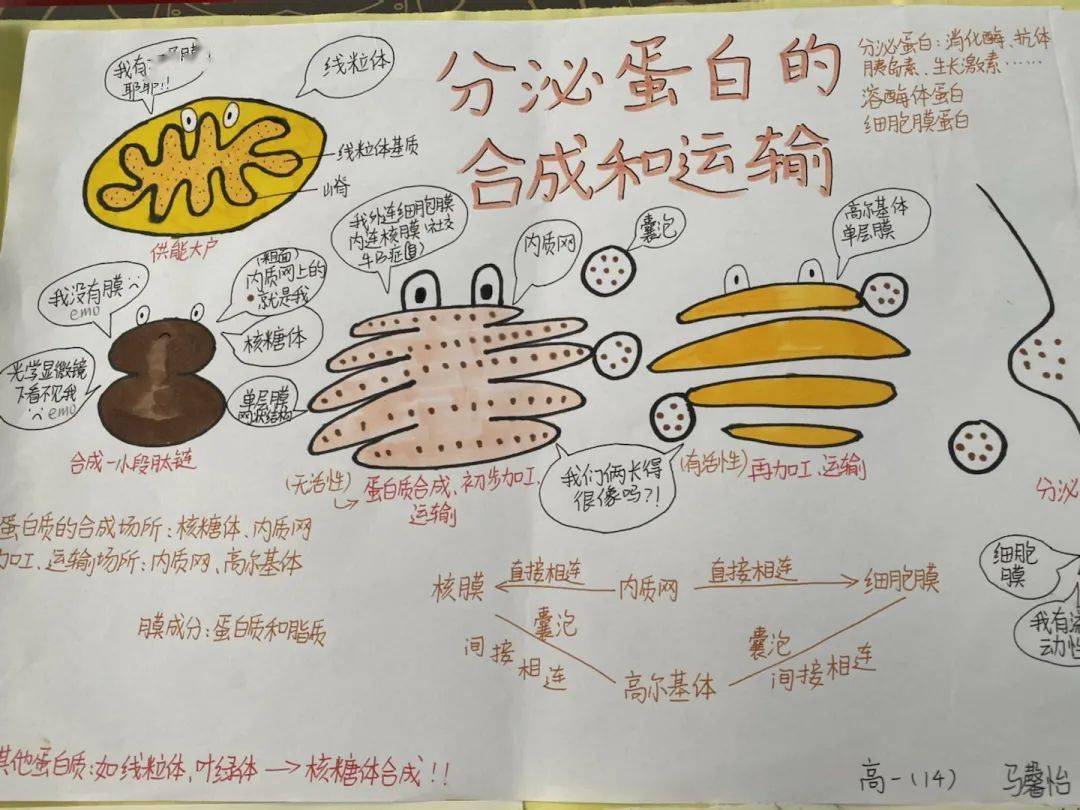 分泌蛋白的
合成和运输
分泌蛋白：消化酶、抗体
胰岛素、生长激素……
溶酶体蛋白
细胞膜蛋白
我有
膜
耶耶!!
线粒体
线粒体基质
嵴
供能大户
我没有膜
emo
(粗面)
内质网上的
就是我
核糖体
光学显微镜
下看不见我
emo
合成一小段肽链
我外连细胞膜
内连核膜(社交
牛B症
内质网
单层膜
网状结构
(无活性)
蛋白质合成、初步加工、
运输
囊泡
高尔基体
单层膜
我们俩长得
很像吗?!
(有活性)
再加工、运输
分泌
细胞
膜
我有流
动性
蛋白质的合成场所：核糖体、内质网
加工、运输场所：内质网、高尔基体
膜成分：蛋白质和脂质
核膜
直接相连
内质网
直接相连
细胞膜
囊泡
间接相连
高尔基体
囊泡
间接相连
其他蛋白质：如线粒体、叶绿体→核糖体合成!!
高一(14)
马馨怡